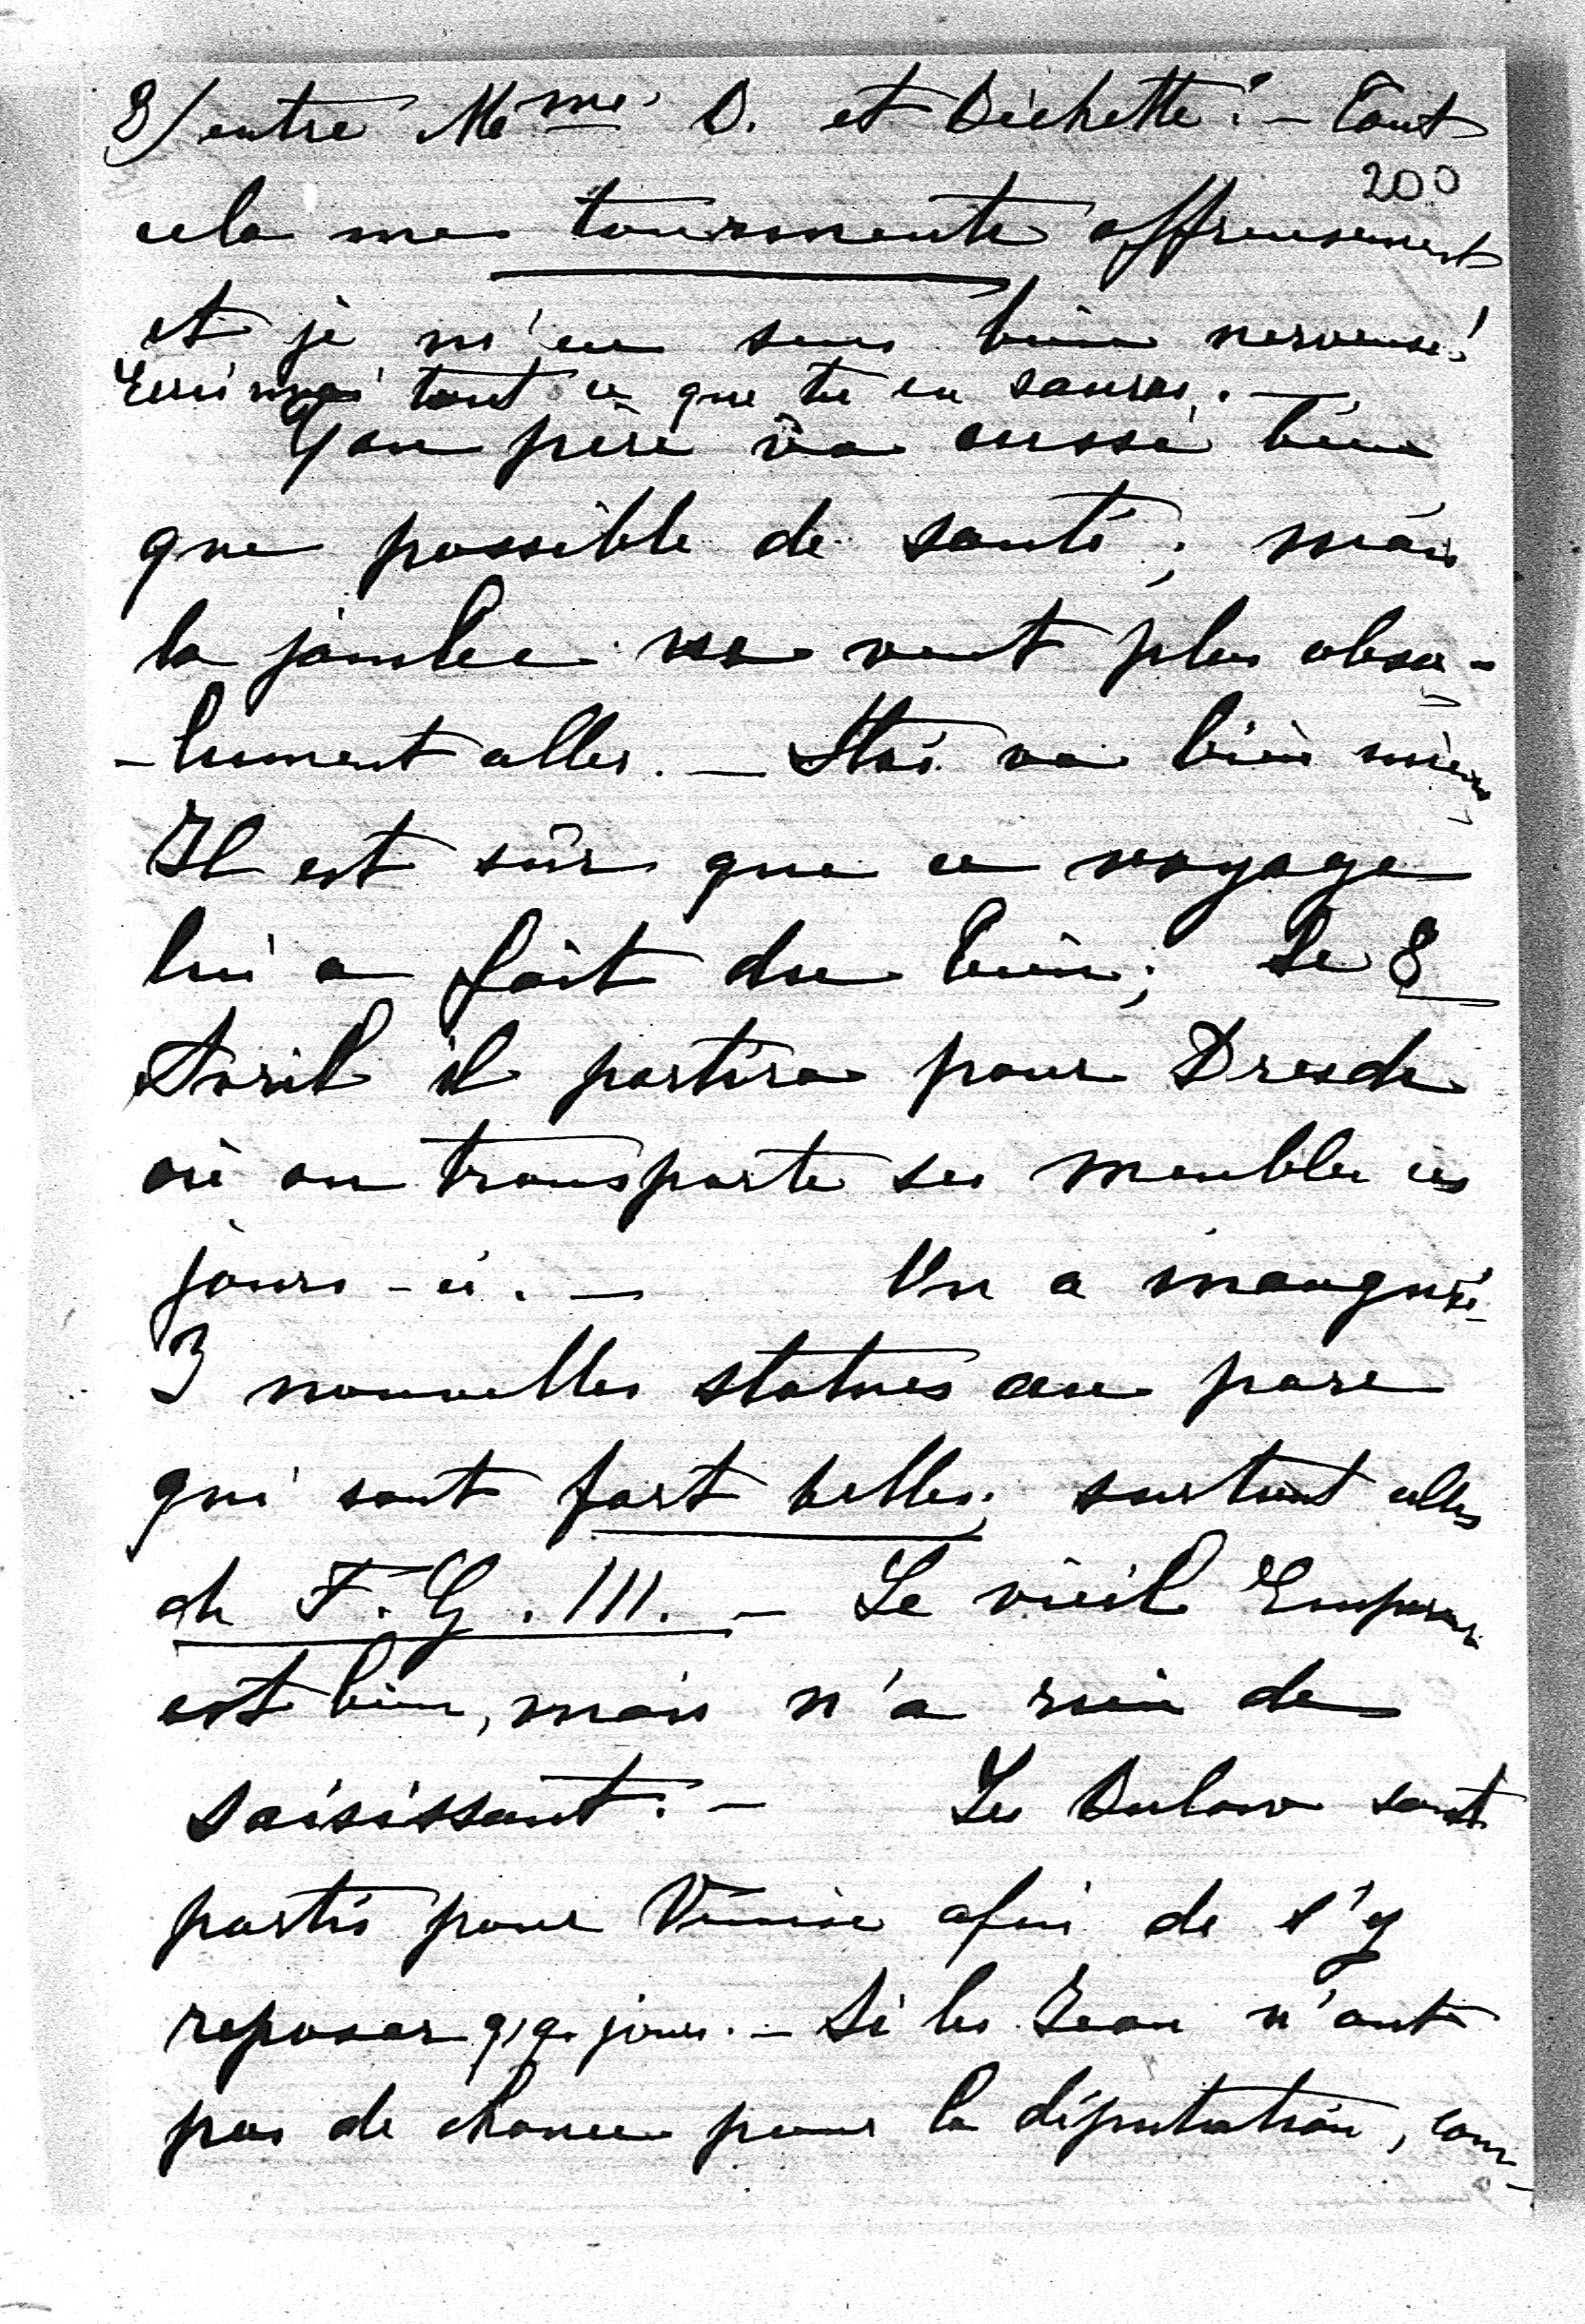 3/ entre Mme D. et Bichette. – Tout
200
cela me tourmente affreusement
et je m'en sens bien nerveuse!
Ecris moi tout ce que tu en sauras. —
Ton père va aussi bien
que possible de santé; mais
la jambe ne veut plus abso-
-lument aller. — va bien mieux
Il est sûr que ce voyage
lui a fait du bien; Le 8
Avril il partira pour Dresde
où on transporte ses meubles ces
jours-ci. — On a inauguré
3 nouvelles statues au parc
qui sont fort belles, surtout celles
de F. G. III. — Le vieil Empereur
est bien, mais n'a rien de
saisissant. — Les Bulow sont
partis pour Venise afin de s'y
reposer q,q. jours. — Si les Jean n'ont
pas de chance pour la députation, com-